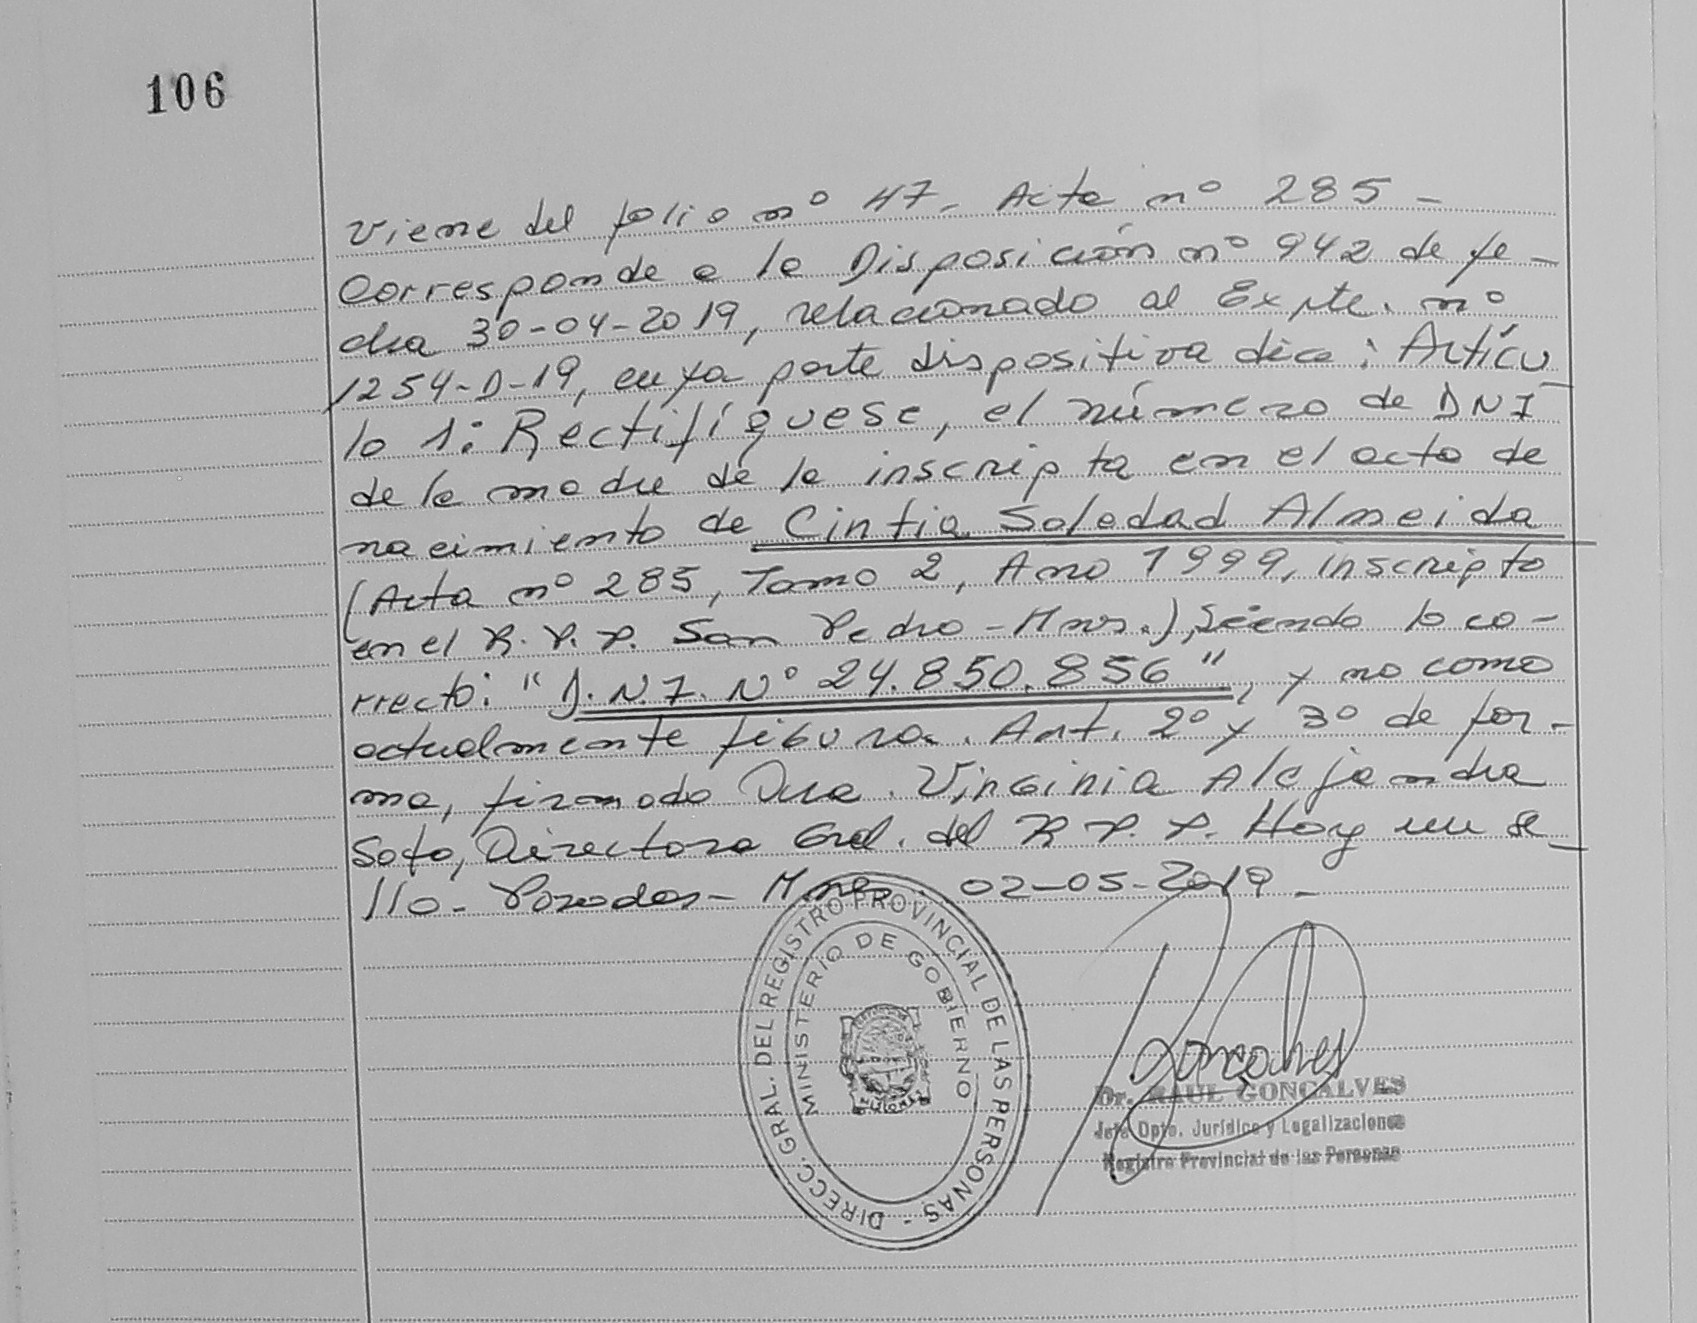 106
Viene del folio nº 47- Acta nº 285-
Corresponde a la Disposición nº 942 de fe-
cha 30-04-2019, relacionado al Expte. nº
1254-D-19, cuya parte dispositiva dice: Artícu
lo 1: Rectifíquese, el número de DNI
de la madre de la inscripta en el acta de
nacimiento de Cintia Soledad Almeida
(Acta nº 285, Tomo 2, Ano 1999, inscripto
en el R.P.P. San Pedro-Mnes.), Siendo lo co-
rrecto: "D.N.I. Nº 24.850.856", y no como
actualmente figura. Art. 2º y 3º de for-
ma, firmado Dra. Virginia Alejandra
Soto, Directora Gral. del R.P.P. Hoy un se_
llo- Posadas- Mnes. 02-05-2019-
DIRECC. GRAL. DEL REGISTRO PROVINCIAL DE LAS PERSONAS -
MINISTERIO DE GOBIERNO
MISIONES
Goncalves
Dr. RAUL GONCALVES
Jefe Dpto. Jurídico y Legalizaciones
Registro Provincial de las Personas